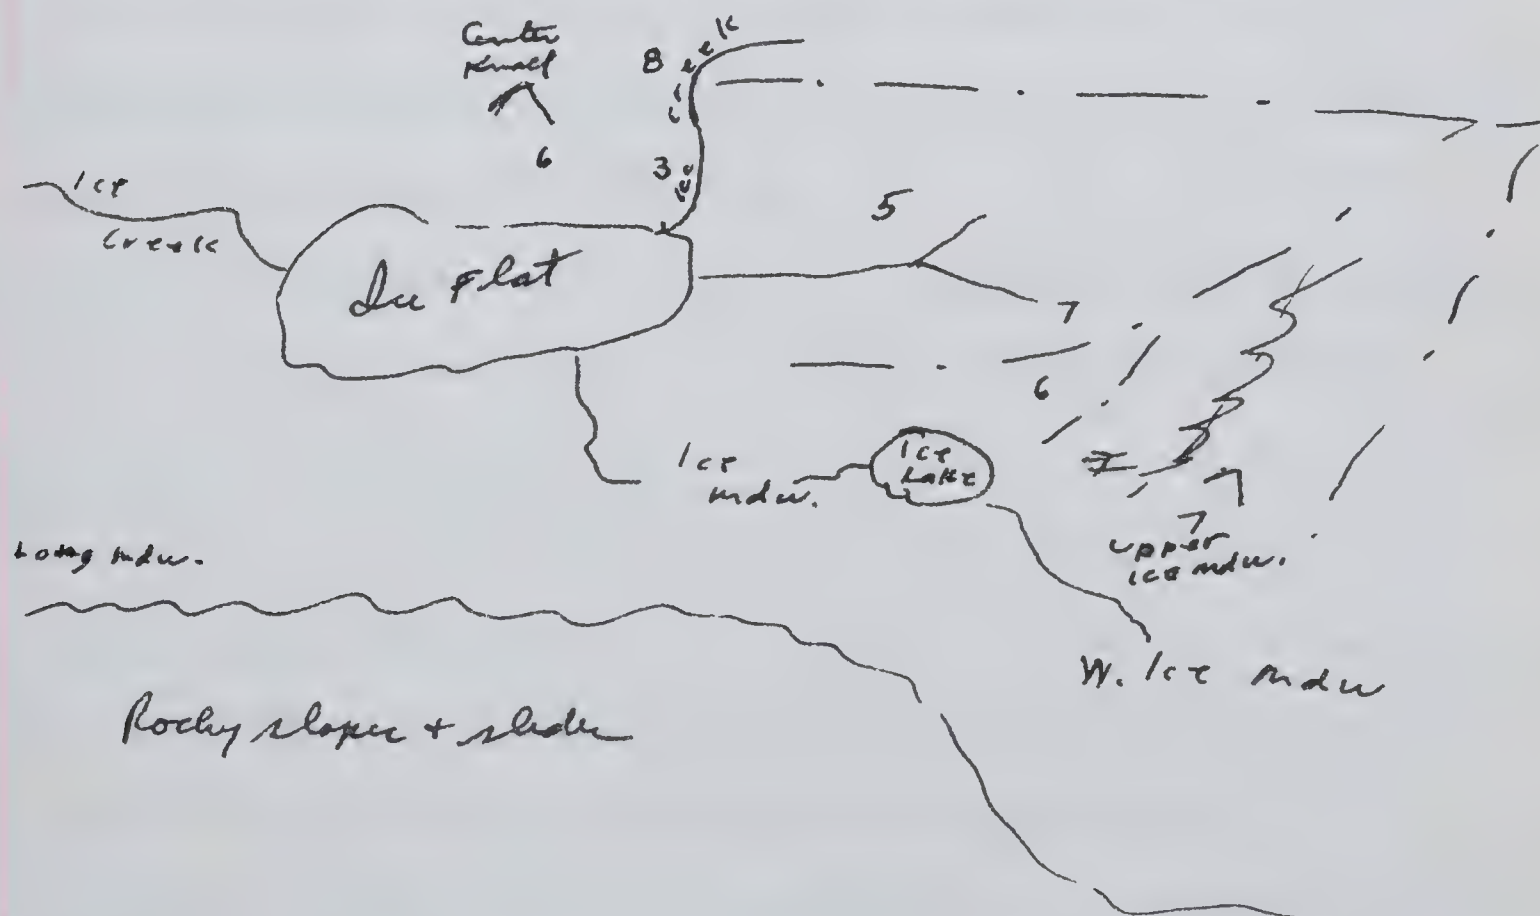 Center
Knoll
6
8
creek
3
Ice
Ice
Creek
Ice Flat
5
7
6
Ice
mdw.
Ice
Lake
7
upper
ice mdw.
Long mdw.
W. Ice mdw
Rocky slopes + slides